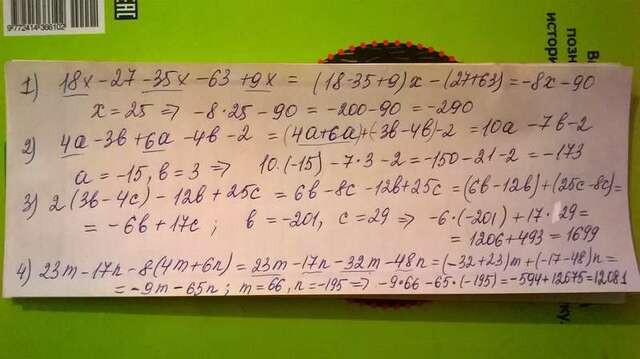 9 772414 386102
1) 18x-27-35x-63+9x = (18-35+9)x-(27+63)=-8x-90
x=25 ⇒ -8·25-90=-200-90=-290
2) 4a-3b+6a-4b-2=(4a+6a)+(-3b-4b)-2=10a-7b-2
a=-15, b=3 ⇒ 10·(-15)-7·3-2=-150-21-2=-173
3) 2(3b-4c)-12b+25c=6b-8c-12b+25c=(6b-12b)+(25c-8c)=
=-6b+17c; b=-201, c=29 ⇒ -6·(-201)+17·29=
=1206+493=1699
4) 23m-17n-8(4m+6n)=23m-17n-32m-48n=(-32+23)m+(-17-48)n=
=-9m-65n; m=66, n=-195 ⇒ -9·66-65·(-195)=-594+12675=12081